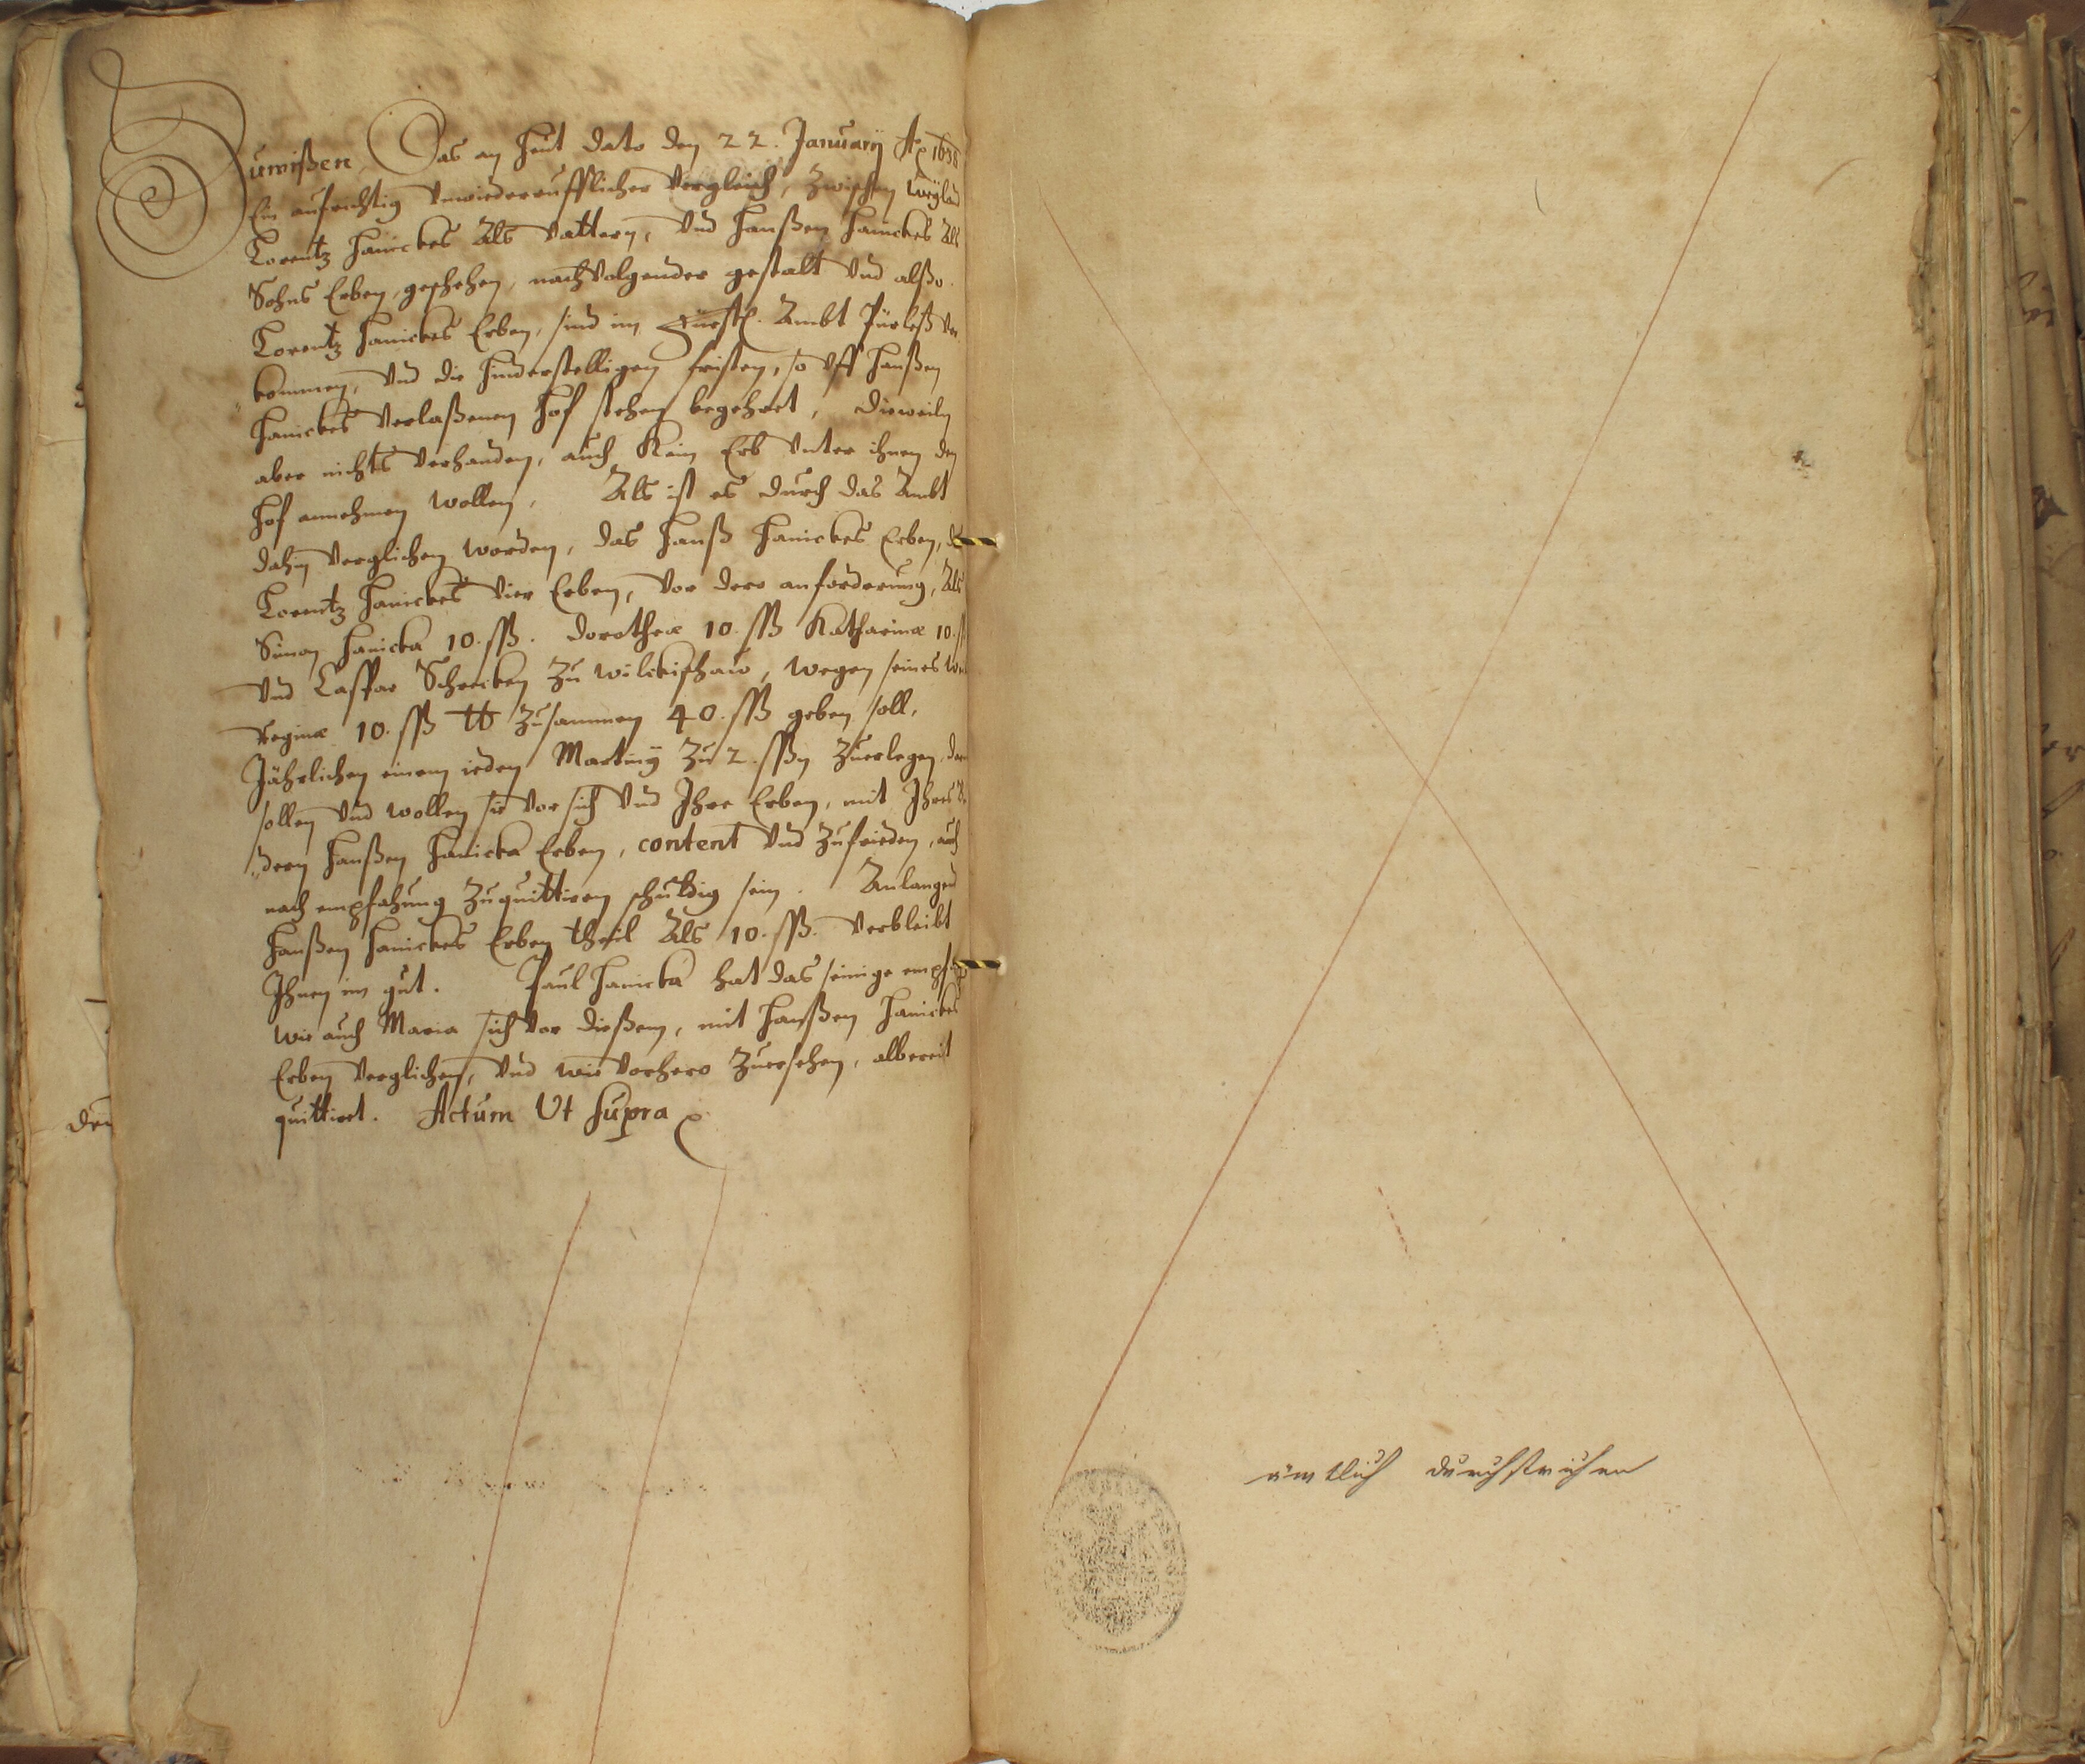 Zuwißen, Das an heut dato den 22. January Ao 1658
Ein aufrichtig unwiederrufflicher Vergleich, Zwischen Weyland
Lorentz Hanickes Als Vattern, Und Hanßen Hanickes Als
Sohns Erben, geschehen, nachvolgender gestalt Und alßo.
Lorentz Hanickes Erben, sind im Fürstl. Ambt
kommen, Und die hinderstelligen fristen, so Uff Hanßen
Hanickes Verlaßenen Hof stehen begehret, Dieweiln
aber nichts Verhanden, auch Kein Erb Unter ihnen den
Hof annehmen Wollen, Als ist es durch das Ambt
dahin Verglichen Worden, das Hanß Hanickes Erben,
Lorentz Hanickes Vier Erben, Vor dero anforderung, Als
Simon Hanicka 10. ßß. Dorotheæ 10. ßß Katharinæ 10.
Und Casspar Schreiben Zu Wilckischaw, Wegen seines
Reginæ 10. ßß tt Zusammen 40. ßß geben soll,
Jährlichen einem ieden Martiny Zu 2. ßßn Zuerlegen,
sollen Und Wollen sie Vor sich Und Ihre Erben, mit Ihres
dern Hanßen Hanicka Erben, content Und Zufrieden, auch
nach empfahung Zuquittiren schuldig sein. Anlangend
Hanßen Hanickes Erben theil Als 10. ßß. Verbleibt
Ihnen im gut. Paul Hanicka hat das seinige
Wie auch Maria sich Vor dießem, mit Hanßen Hanickes
Erben Verglichen, Und wie Vorhero Zuersehen, albereit
quittiret. Actum Ut supra
ämtlich durchstrichen